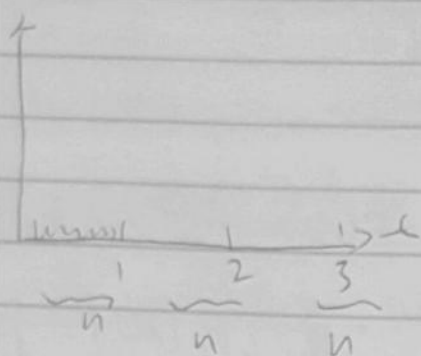 t
1 2 3
n n n